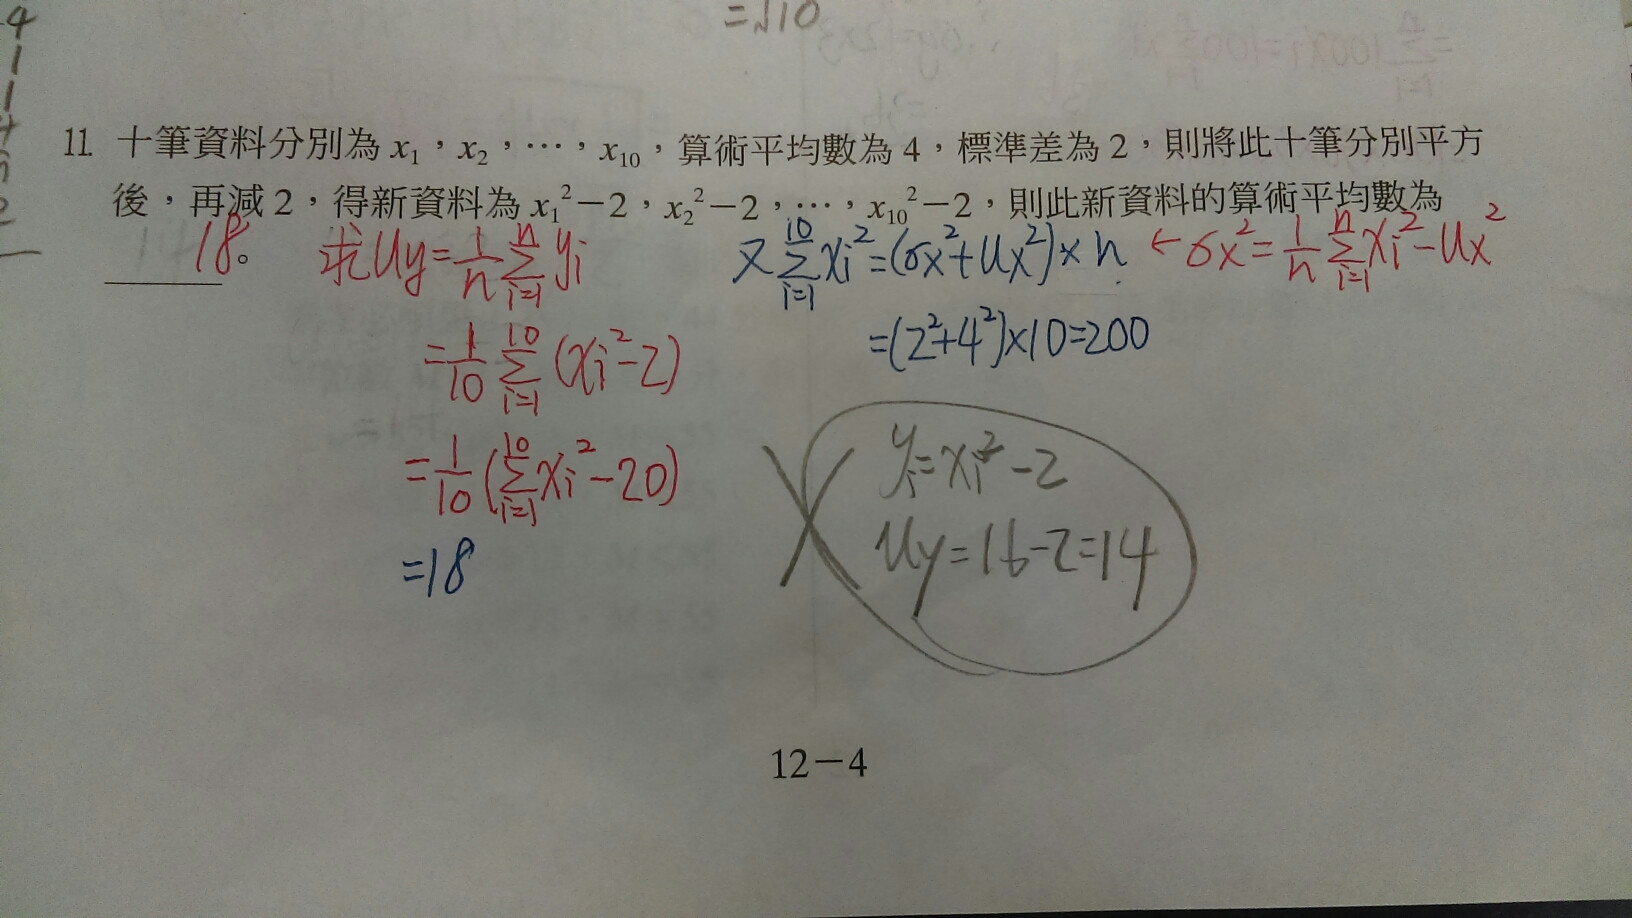 =√10
4
1
1
2
11. 十筆資料分別為 x₁，x₂，⋯，x₁₀，算術平均數為 4，標準差為 2，則將此十筆分別平方
後，再減 2，得新資料為 x₁²－2，x₂²－2，⋯，x₁₀²－2，則此新資料的算術平均數為
18。
求 Uy=1/n Σ(i=1→n) yi
=1/10 Σ(i=1→10) (xi²-2)
=1/10 (Σ(i=1→10) xi²-20)
=18
又 Σ(i=1→10) xi²=(σx²+Ux²)×n ← σx²=1/n Σ(i=1→n) xi²-Ux²
=(2²+4²)×10=200
yi=xi²-2
Uy=16-2=14
12－4